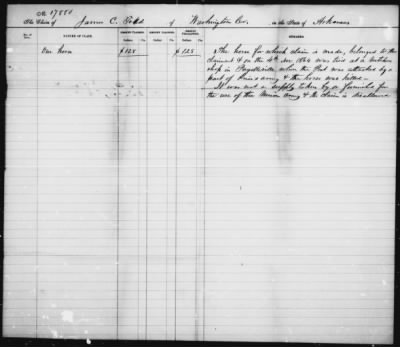 No. 17550
The Claim of James C. Pitts of Washington Co. in the State of Arkansas
No. of Item. NATURE OF CLAIM. AMOUNT CLAIMED. AMOUNT ALLOWED. AMOUNT DISALLOWED. REMARKS.
Dollars. Cts. Dollars. Cts. Dollars. Cts.
One horse $ 125 $ 125 The horse for which claim is made, belonged to the
claimant & on the 4th Nov 1864 was tied at a butcher
shop in Fayetteville when the Post was attacked by a
part of Price's army & the horse was killed -
It was not a supply taken by or furnished for
the use of the Union army & the claim is disallowed